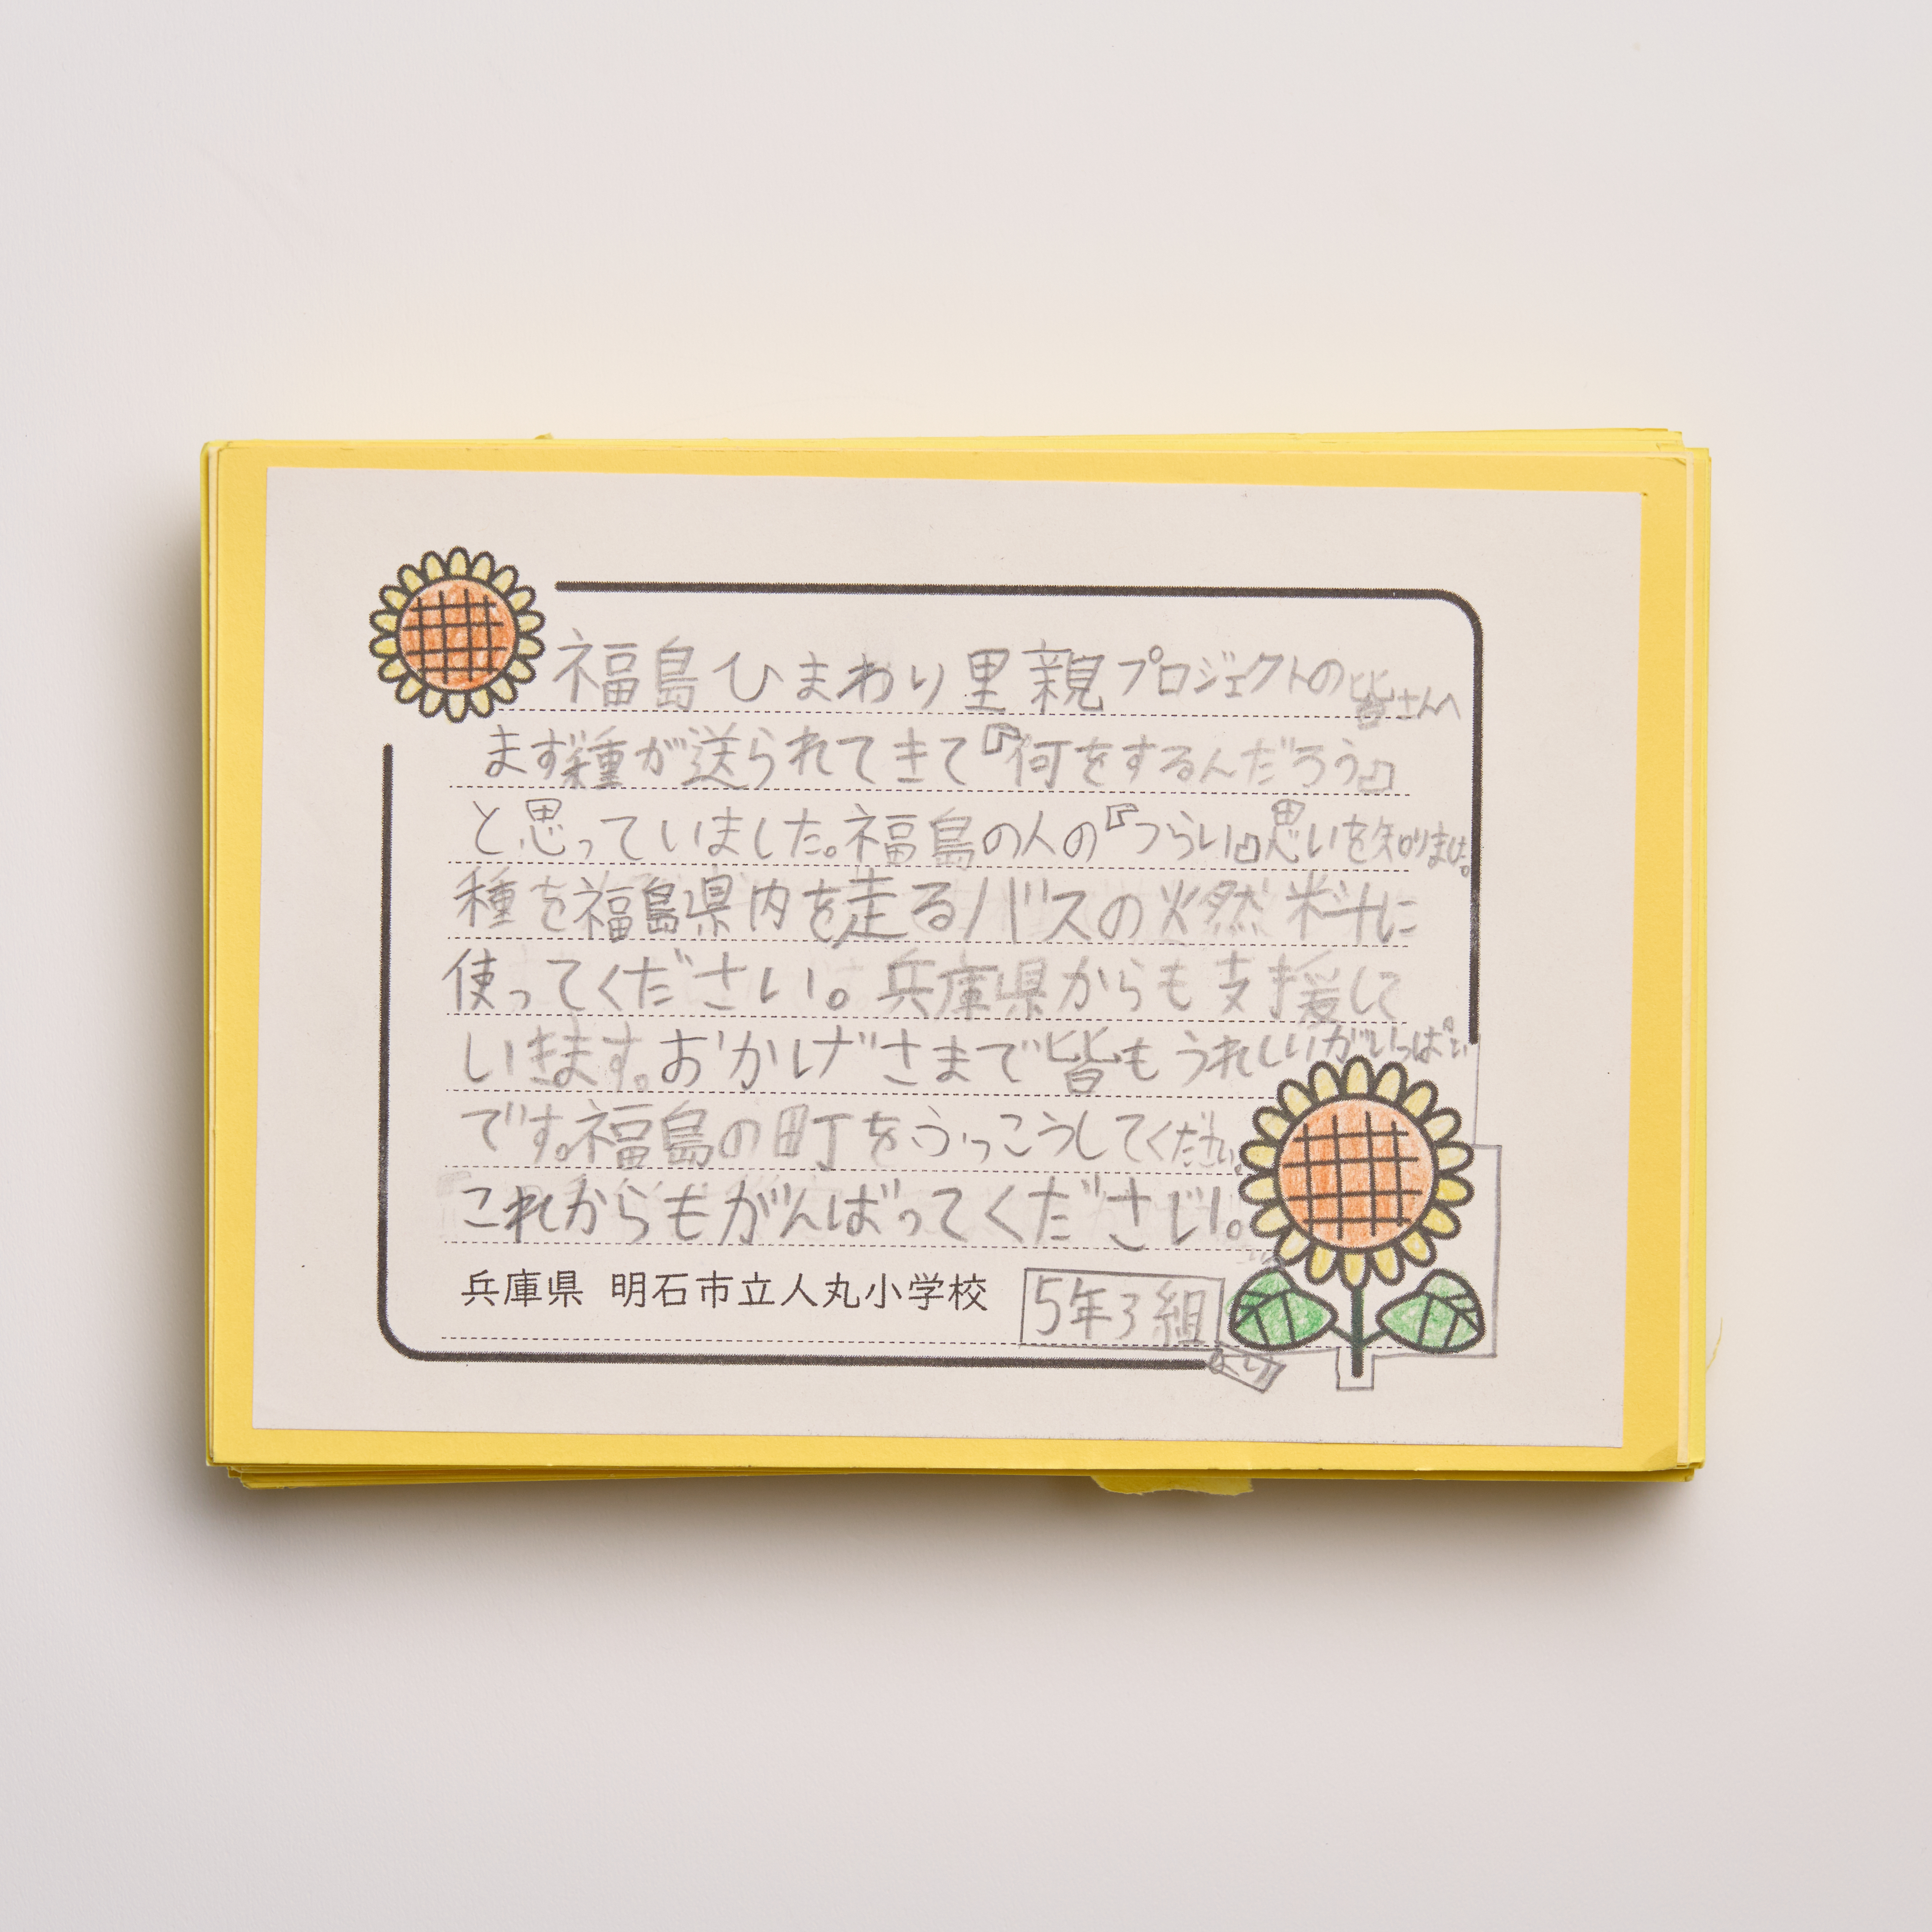 福島ひまわり里親プロジェクトの皆さんへ
まず種が送られてきて『何をするんだろう』
と思っていました。福島の人の『つらい』思いを知りました。
種を福島県内を走るバスの燃料に
使ってください。兵庫県からも支援して
いきます。おかげさまで皆もうれしいがいっぱい
です。福島の町をふっこうしてください。
これからもがんばってください。
兵庫県 明石市立人丸小学校 5年3組
より